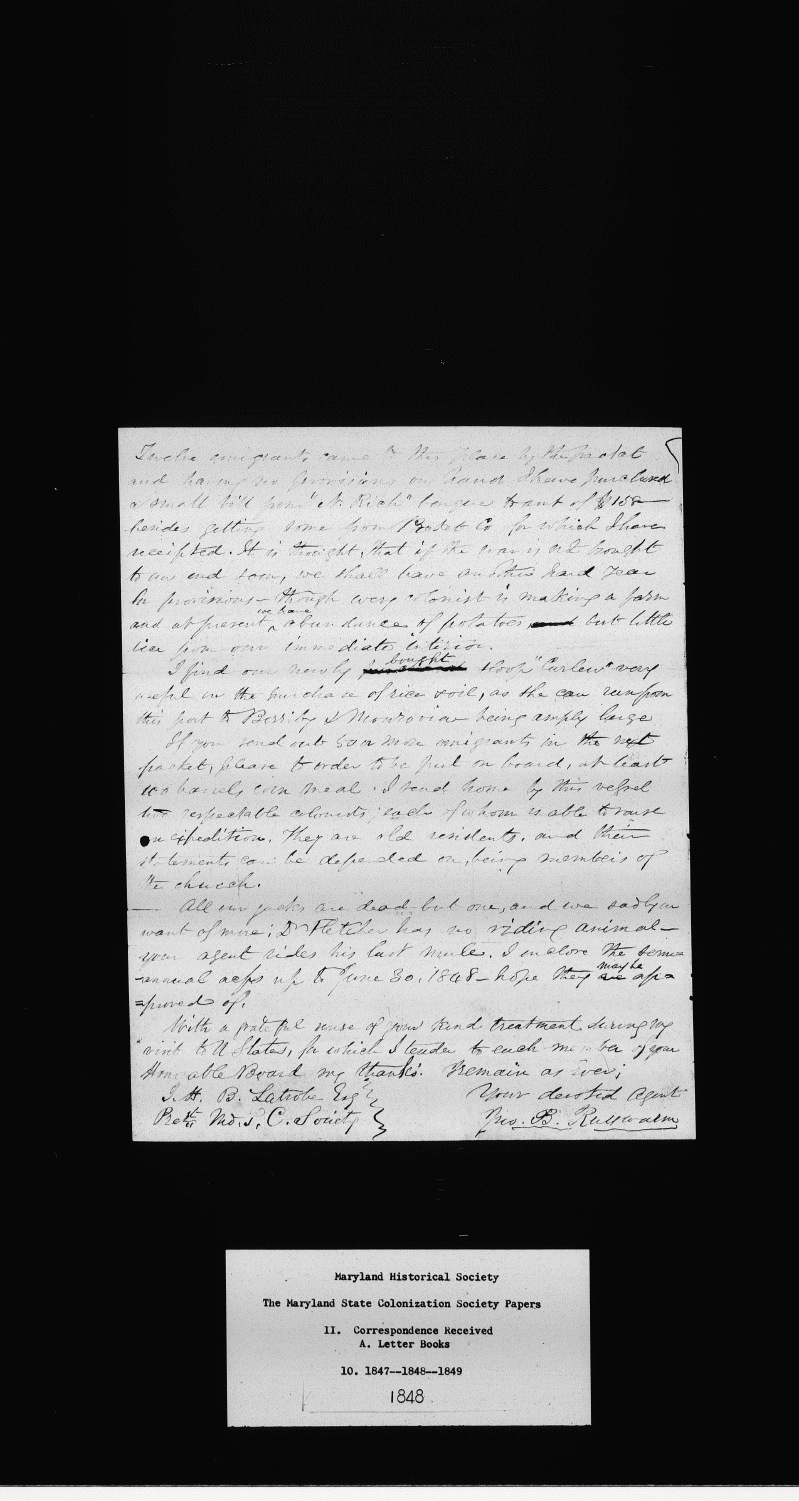 Twelve emigrants came to this place by the Packet
and having no provisions on hand I have purchased
a small bill from "N. Rich" barque to amt of $158—
besides getting some from & Co for which I have
receipted. It is thought, that if the war is not brought
to an end soon, we shall have another hard year
for provisions— though every colonist is making a farm
and at present we have abundance of potatoes but little
rice from our immediate interior.
I find our newly bought sloop "Curlew" very
useful in the purchase of rice & oil, as she can run from
this port to Berriby & Monrovia being amply large
If you send out 50 or more emigrants in the next
packet, please to order to be put on board, at least
100 barrels corn meal. I send home by this vessel
two respectable colonists, each of whom is able to raise
an expedition. They are old residents, and their
statements can be depended on, being members of
the church.
— All our jacks are dead but one, and we sadly in
want of more; Dr Fletcher has no riding animal—
your agent rides his last mule. I inclose the semi=
=annual accts up to June 30, 1848— hope they may be ap=
=proved of.
With a grateful sense of your kind treatment during my
visit to U States, for which I tender to each member of your
Honorable Board my thanks. Remain as ever;
J. H. B. Latrobe Esqr } Your devoted agent
Prest. Md. S. C. Society } Jno. B. Russwurm
Maryland Historical Society
The Maryland State Colonization Society Papers
II. Correspondence Received
A. Letter Books
10. 1847--1848--1849
1848